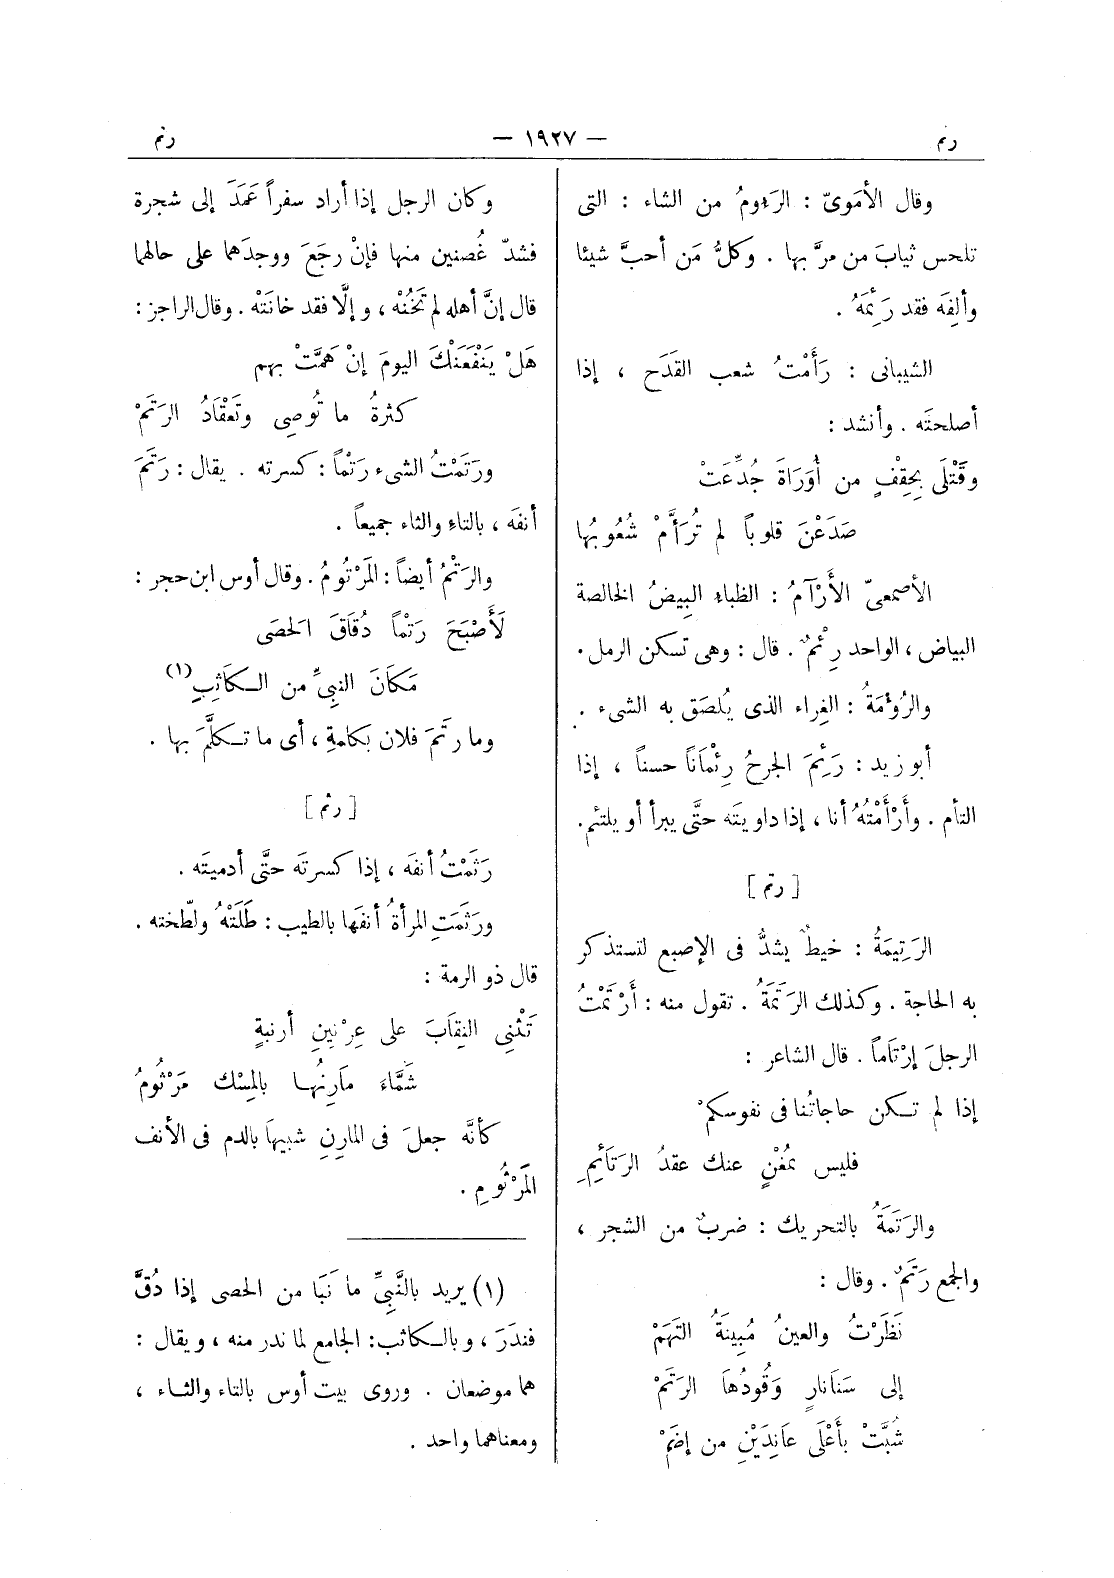 رتم — ١٩٢٧ — رتم
وقال الأمَوىّ : الرَءومُ من الشاء : التى
تلحس ثيابَ من مرَّ بها . وكلُّ مَن أحبَّ شيئا
وألِفَه فقد رَئِمَهُ .
الشيبانى : رَأَمْتُ شعب القدَح ، إذا
أصلحتَه . وأنشد :
وقَتْلَى بِحِقْفٍ من أُوَرَاةَ جُدِّعَتْ
صَدَعْنَ قلوباً لم تُرَأَّمْ شُعُوبُها
الأصمعىّ الأَرْآمُ : الظباء البِيضُ الخالصة
البياض ، الواحد رِئْمٌ . قال : وهى تسكن الرمل .
والرُؤمَةُ : الغِراء الذى يُلصَق به الشىء .
أبو زيد : رَئِمَ الجرحُ رِئْمَاناً حسناً ، إذا
التأم . وأَرْأَمْتُهُ أنا ، إذا داويتَه حتَّى يبرأ أو يلتئم .
[ رتم ]
الرَتِيمَةُ : خيطٌ يشدُّ فى الإصبع لتستذكر
به الحاجة . وكذلك الرَتَمَةُ . تقول منه : أَرْتَمْتُ
الرجلَ إرْتَاماً . قال الشاعر :
إذا لم تـكن حاجاتُنا فى نفوسكمْ
فليس بمُغْنٍ عنك عقدُ الرَتَائِمِ
والرَتَمَةُ بالتحريك : ضربٌ من الشجر ،
والجمع رَتَمٌ . وقال :
نَظَرْتُ والعينُ مُبِينَةُ التَهَمْ
إلى سَنَانارٍ وَقُودُهَا الرَتَمْ
شُبَّتْ بأَعْلَى عَانِدَيْنِ من إضَمْ
وكان الرجل إذا أراد سفراً عَمَدَ إلى شجرة
فشدّ غُصنين منها فإنْ رجَعَ ووجدَهما على حالهما
قال إنَّ أهله لم تَخُنْه ، وإلَّا فقد خانَتْه . وقال الراجز :
هَلْ يَنْفَعَنْكَ اليومَ إنْ هَمَّتْ بهم
كثرةُ ما تُوصِى وتَعْقَادُ الرَتَمْ
ورَتَمْتُ الشىء رَتْماً : كسرته . يقال : رَتَمَ
أنفَه ، بالتاءِ والثاء جميعاً .
والرَتْمُ أيضاً : المَرْتُومُ . وقال أوس ابن حجر :
لَأَصْبَحَ رَتْماً دُقَاقَ الحَصَى
مَكَانَ النبِىِّ من الـكَاثِبِ (١)
وما رتَمَ فلان بكلمةٍ ، أى ما تـكلَّمَ بها .
[ رثم ]
رَثَمْتُ أنفَه ، إذا كسرتَه حتَّى أدميتَه .
ورَثَمَتِ المرأةُ أنفَها بالطيب : طَلَتْهُ ولطّخته .
قال ذو الرمة :
تَثْنِى النِقَابَ على عِرْنِينِ أرنبةٍ
شَمَّاءَ مَارِنُهـا بالمِسْك مَرْثُومُ
كأنَّه جعلَ فى المارِنِ شبيهاَ بالدم فى الأنف
المَرْثُومِ .
(١) يريد بالنَّبِىِّ مَا نَبَا من الحصى إذا دُقَّ
فندَرَ ، وبالـكاثب: الجامع لما ندر منه ، ويقال :
هما موضعان . وروى بيت أوس بالتاء والثـاء ،
ومعناهما واحد .